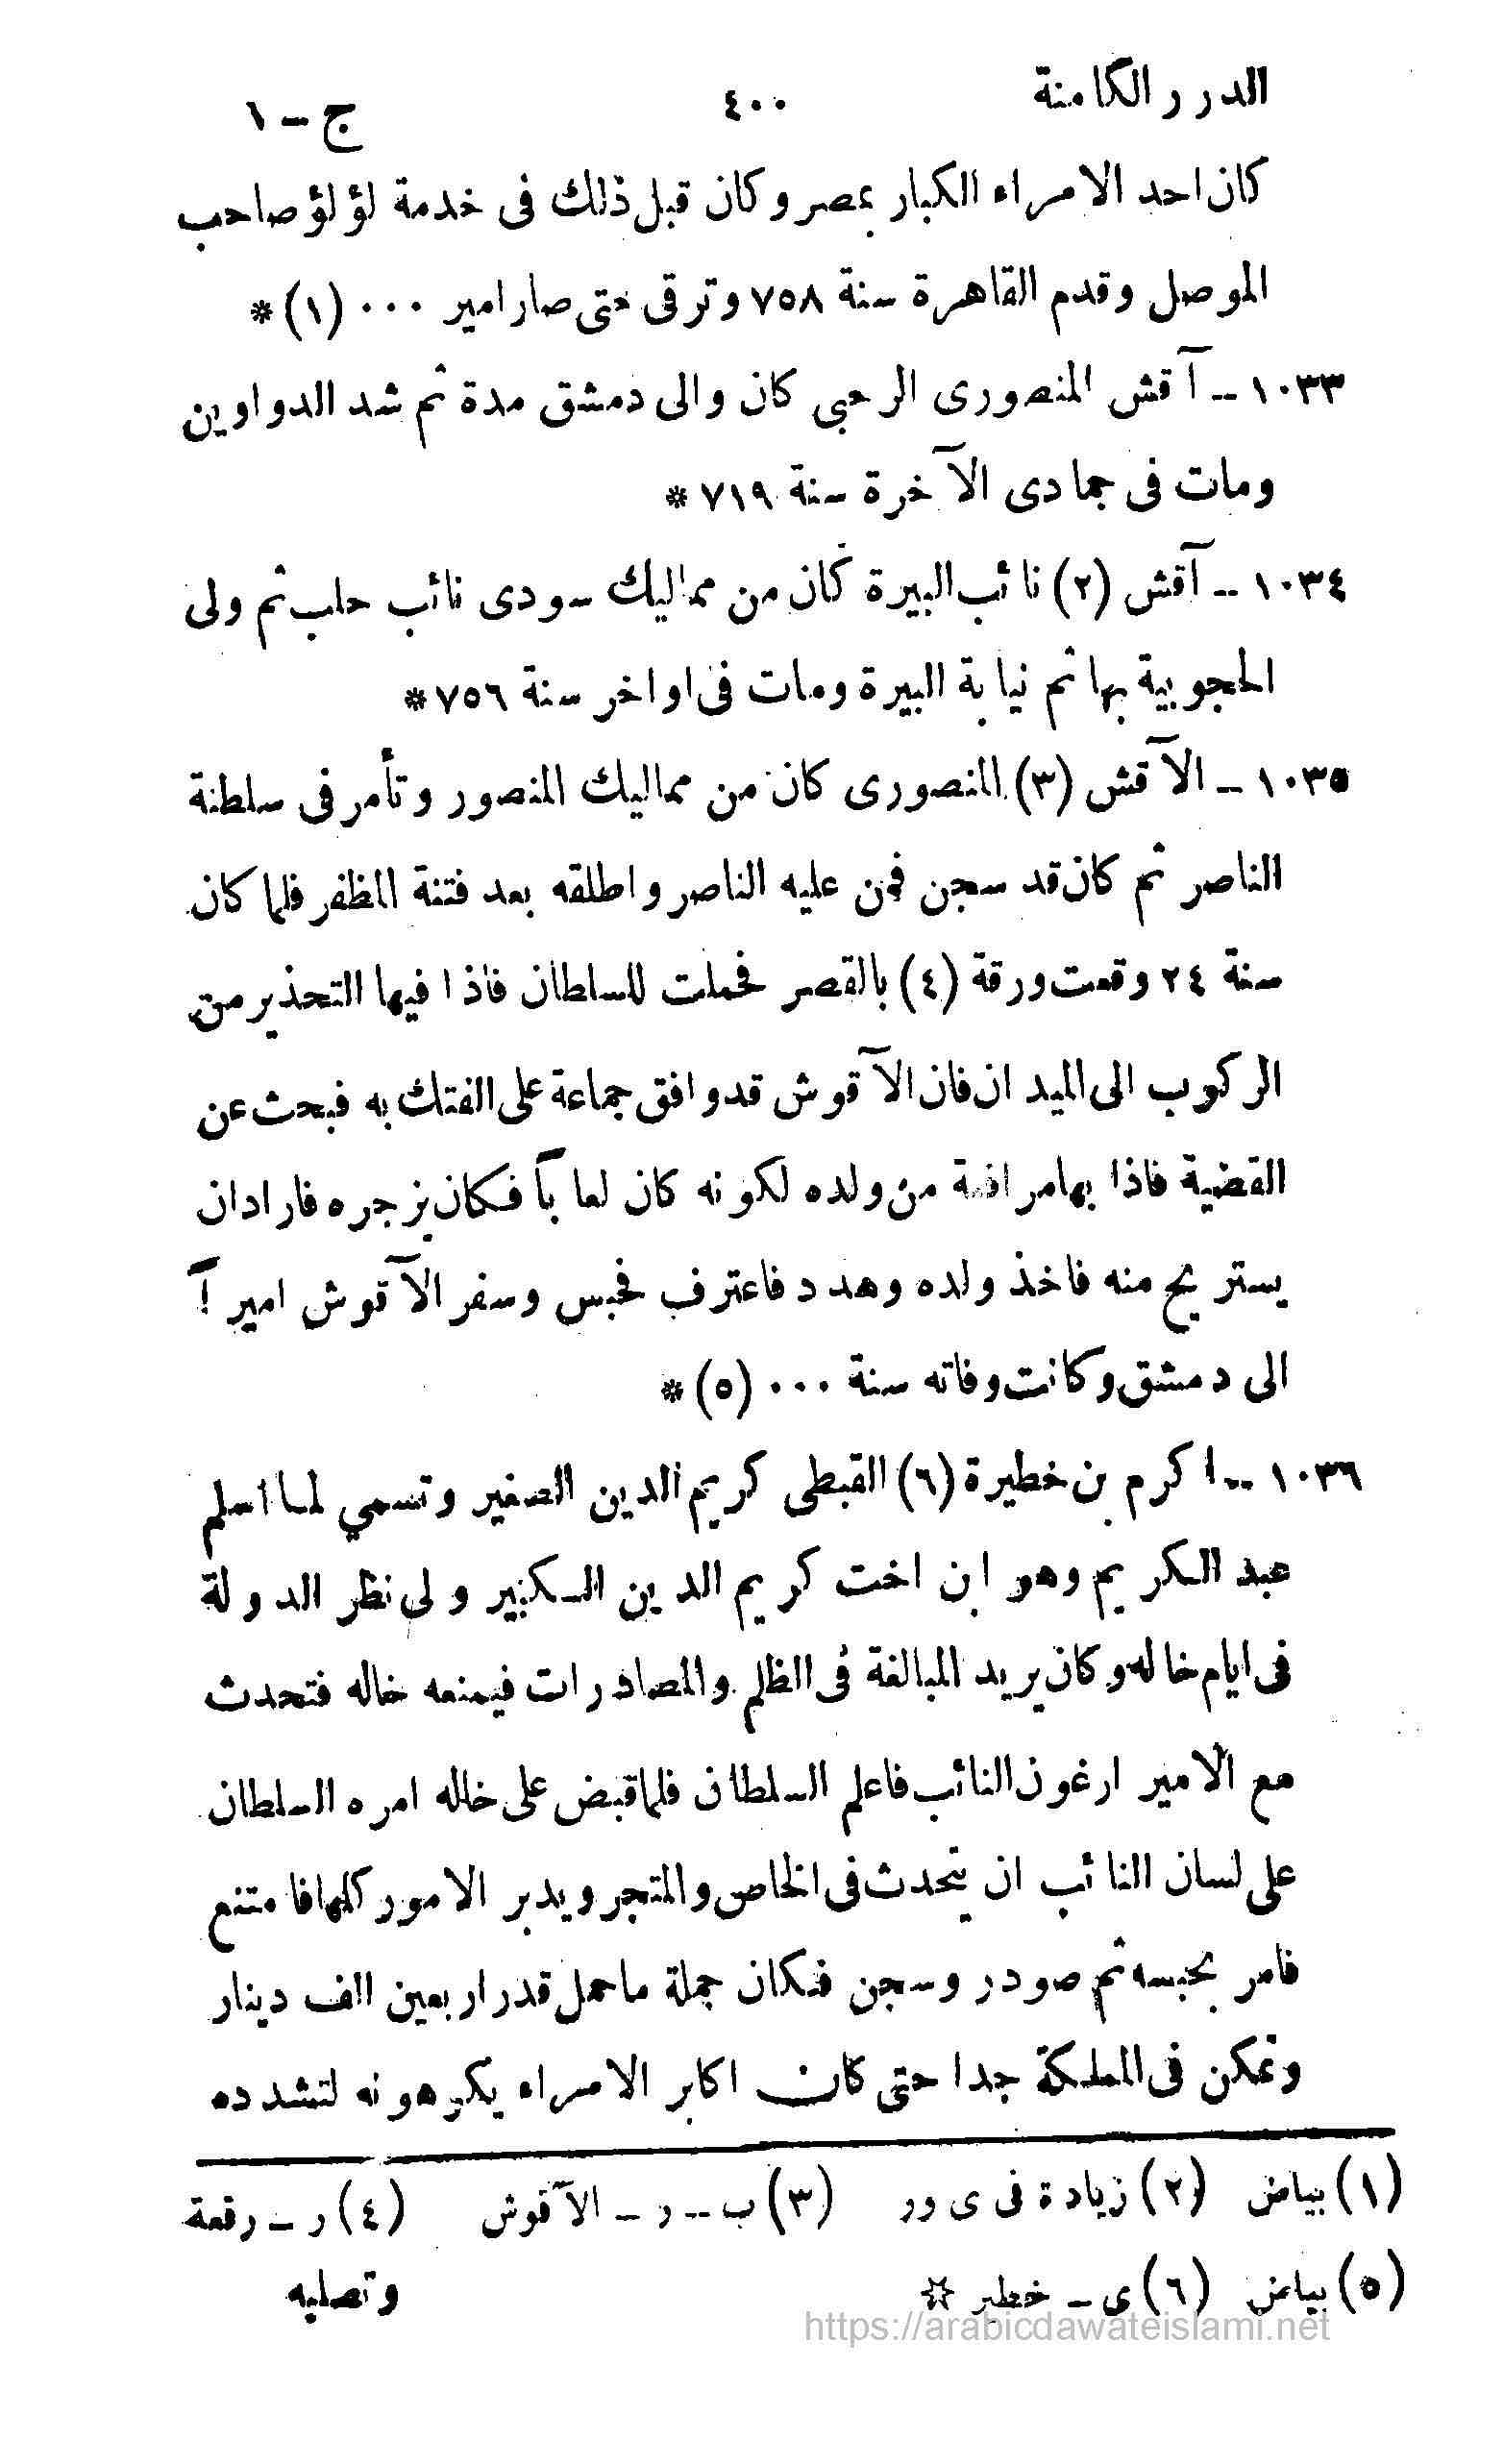 الدرر الكامنة ٤٠٠ ج - ١
كان احد الامراء الكبار بمصر وكان قبل ذلك فى خدمة لؤلؤ صاحب
الموصل وقدم القاهرة سنة ٧٥٨ وترقى حتى صار امير ٠٠٠ (١) *
١٠٣٣ - آقش المنصورى الرحبى كان والى دمشق مدة ثم شد الدواوين
ومات فى جمادى الآخرة سنة ٧١٩ *
١٠٣٤ - آقش (٢) نائب البيرة كان من مماليك سودى نائب حلب ثم ولى
الحجوبية بها ثم نيابة البيرة ومات فى اواخر سنة ٧٥٦ *
١٠٣٥ - الآقش (٣) المنصورى كان من مماليك المنصور وتأمر فى سلطنة
الناصر ثم كان قد سجن فمن عليه الناصر واطلقه بعد فتنة المظفر فلما كان
سنة ٢٤ وقعت ورقة (٤) بالقصر فحملت للسلطان فاذا فيها التحذير من
الركوب الى الميدان فان الآقوش قد وافق جماعة على الفتك به فبحث عن
القضية فاذا بها مرافعة من ولده لكونه كان لعاباً فكان يزجره فاراد ان
يستريح منه فاخذ ولده وهدد فاعترف فحبس وسفر الآقوش اميراً
الى دمشق وكانت وفاته سنة ٠٠٠ (٥) *
١٠٣٦ - اكرم بن خطيرة (٦) القبطى كريم الدين الصغير وتسمي لما اسلم
عبد الكريم وهو ابن اخت كريم الدين الكبير ولى نظر الدولة
فى ايام خاله وكان يريد المبالغة فى الظلم والمصادرات فيمنعه خاله فتحدث
مع الامير ارغون النائب فاعلم السلطان فلما قبض على خاله امره السلطان
على لسان النائب ان يتحدث فى الخاص والمتجر ويدبر الامور كلها فامتنع
فامر بحبسه ثم صودر وسجن فكان جملة ما حمل قدر اربعين الف دينار
وتمكن فى المملكة جدا حتى كان اكابر الامراء يكرهونه لتشدده
(١) بياض (٢) زيادة فى ى ور (٣) ب - ر - الآقوش (٤) ر - رقعة
(٥) بياض (٦) ى - خطير *
وتصليه
https://arabicdawateislami.net